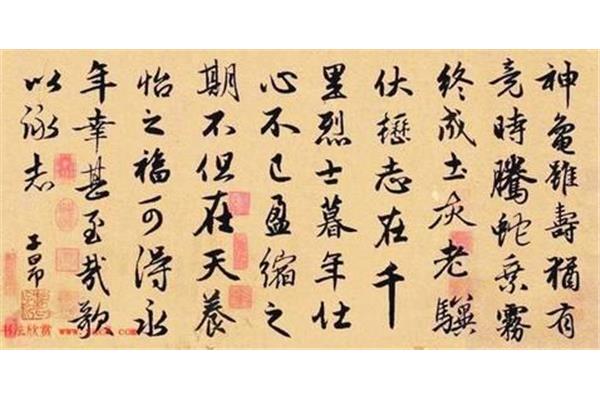 神龜雖壽猶有
竟時騰蛇乘霧
終成土灰老驥
伏櫪志在千
里烈士暮年壯
心不已盈縮之
期不但在天養
怡之福可得永
年幸甚至哉歌
以詠志
子昂
书法欣赏